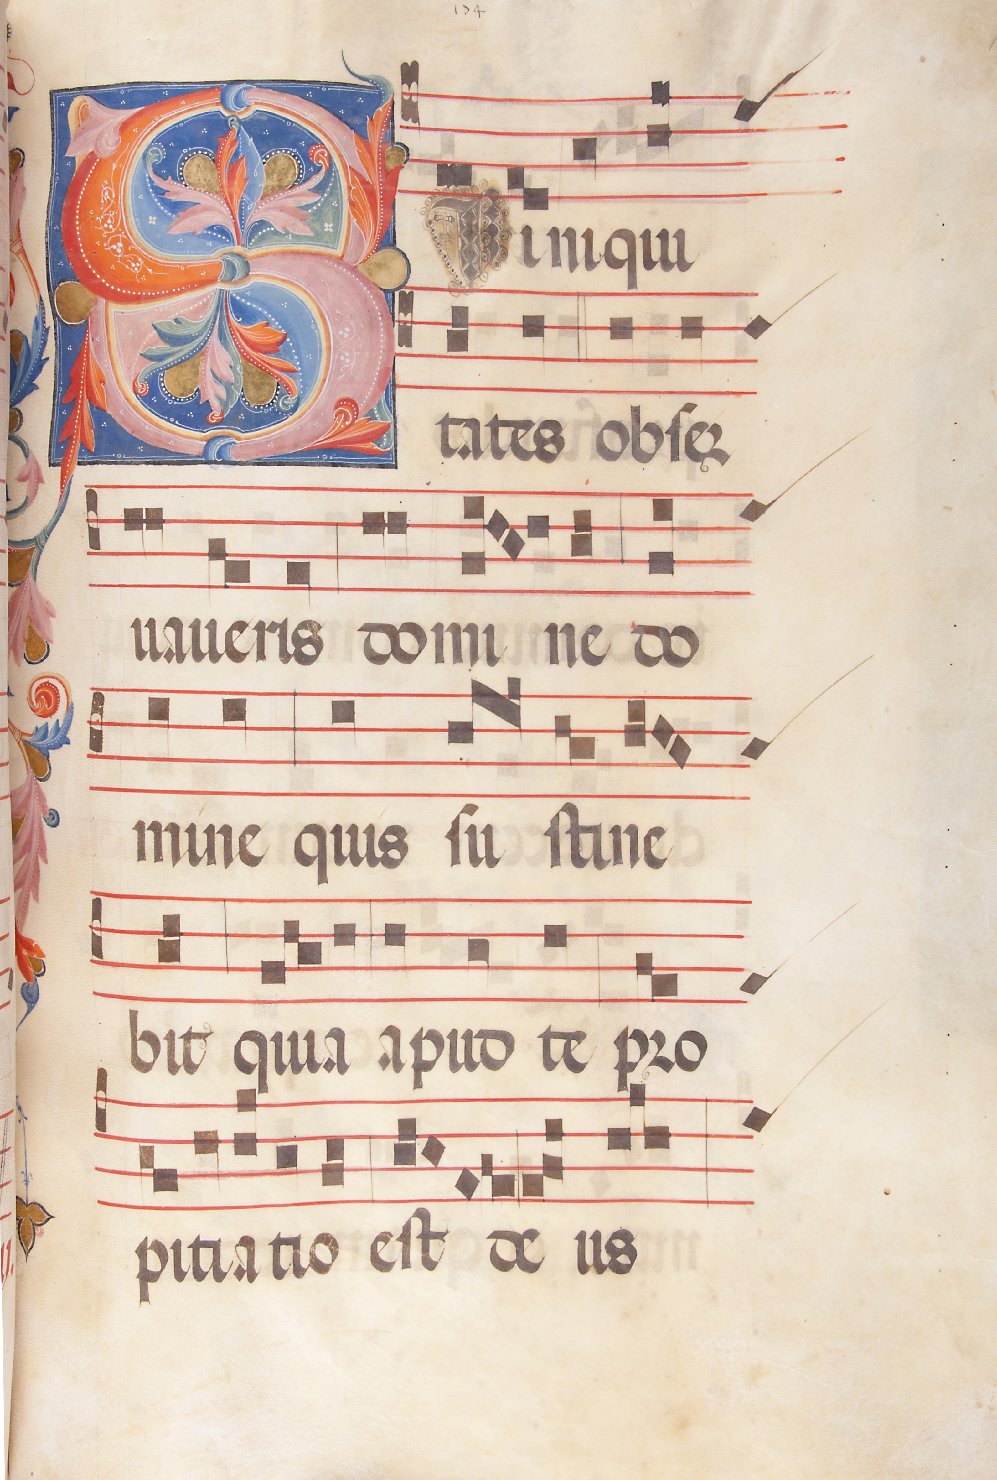 134
SI iniqui
tates obser
uaueris domi ne do
mine quis su stine
bit quia apud te pro
pitiatio est de us